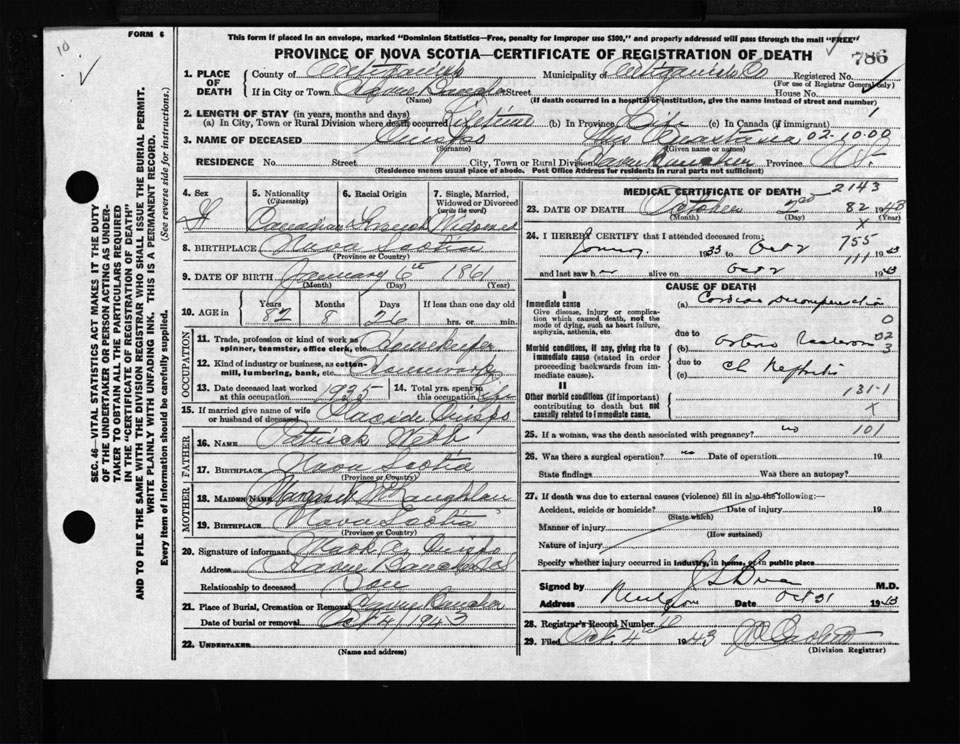 10
FORM 6
This form if placed in an envelope, marked "Dominion Statistics—Free, penalty for improper use $300," and properly addressed will pass through the mail "FREE"
PROVINCE OF NOVA SCOTIA—CERTIFICATE OF REGISTRATION OF DEATH
786
SEC. 46—VITAL STATISTICS ACT MAKES IT THE DUTY
OF THE UNDERTAKER OR PERSON ACTING AS UNDER-
TAKER TO OBTAIN ALL THE PARTICULARS REQUIRED
IN THE "CERTIFICATE OF REGISTRATION OF DEATH"
AND TO FILE THE SAME WITH THE DIVISION REGISTRAR WHO SHALL ISSUE THE BURIAL PERMIT.
WRITE PLAINLY WITH UNFADING INK. THIS IS A PERMANENT RECORD.
Every item of information should be carefully supplied. (See reverse side for instructions.)
1. PLACE OF DEATH County of Antigonish Municipality of Antigonish Co Registered No.
(For use of Registrar General only)
If in City or Town Street House No.
(Name) (If death occurred in a hospital or institution, give the name instead of street and number)
2. LENGTH OF STAY (in years, months and days)
(a) In City, Town or Rural Division where death occurred Lifetime (b) In Province Life (c) In Canada (if immigrant) 1
3. NAME OF DECEASED Mrs 02-10-00
(Surname) (Given name or names)
RESIDENCE No. Street City, Town or Rural Division Province N.S.
(Residence means usual place of abode. Post Office Address for residents in rural parts not sufficient)
4. Sex
5. Nationality (Citizenship) Canadian
6. Racial Origin French
7. Single, Married, Widowed or Divorced (write the word) Widowed
8. BIRTHPLACE Nova Scotia
(Province or Country)
9. DATE OF BIRTH January 6th 1861
(Month) (Day) (Year)
10. AGE in Years 82 Months 8 Days 26 If less than one day old
hrs. or min.
OCCUPATION
11. Trade, profession or kind of work as spinner, teamster, office clerk, etc. Housekeeper
12. Kind of industry or business, as cotton-mill, lumbering, bank, etc. Housework
13. Date deceased last worked at this occupation 1935 14. Total yrs. spent in this occupation Life
15. If married give name of wife or husband of deceased Placide
FATHER
16. NAME Patrick Webb
17. BIRTHPLACE Nova Scotia
(Province or Country)
MOTHER
18. MAIDEN NAME Margaret
19. BIRTHPLACE Nova Scotia
(Province or Country)
20. Signature of informant
Address Havre Boucher
Relationship to deceased Son
21. Place of Burial, Cremation or Removal
Date of burial or removal Oct 4, 1943
22. UNDERTAKER
(Name and address)
MEDICAL CERTIFICATE OF DEATH 2143
23. DATE OF DEATH October 2nd 82 1943
(Month) (Day) (Year)
X
24. I HEREBY CERTIFY that I attended deceased from: 755
1933 to Oct 2 1943
111
and last saw h alive on Oct 2 1943
CAUSE OF DEATH
I
Immediate cause
Give disease, injury or complication which caused death, not the mode of dying, such as heart failure, asphyxia, asthenia, etc.
(a)
0
due to
Morbid conditions, if any, giving rise to immediate cause (stated in order proceeding backwards from immediate cause).
(b) 02
3
due to
(c) Ch Nephritis
II
Other morbid conditions (if important) contributing to death but not causally related to immediate cause.
131-1
X
25. If a woman, was the death associated with pregnancy? no 101
26. Was there a surgical operation? no Date of operation 19
State findings Was there an autopsy?
27. If death was due to external causes (violence) fill in also the following:—
Accident, suicide or homicide? Date of injury 19
(State which)
Manner of injury
(How sustained)
Nature of injury
Specify whether injury occurred in industry, in home, or in public place
Signed by M.D.
Address Date Oct 31 1943
28. Registrar's Record Number
29. Filed Oct. 4th 1943
(Division Registrar)